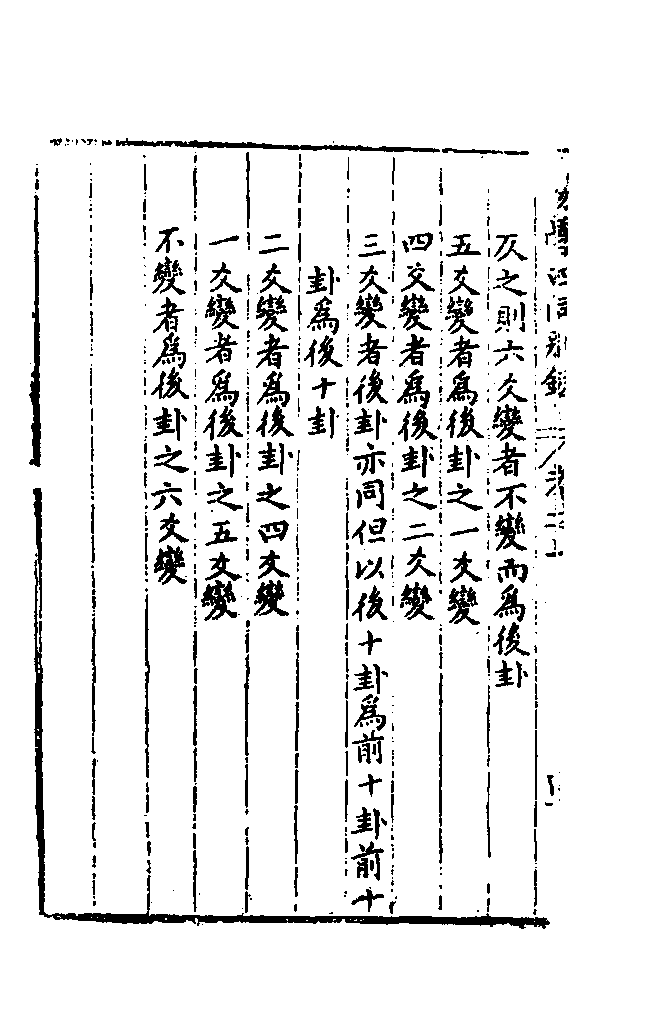 反之則六爻變者不變而爲後卦
五爻變者爲後卦之一爻變
四爻變者爲後卦之二爻變
三爻變者後卦亦同但以後十卦爲前十卦前十
卦爲後十卦
二爻變者爲後卦之四爻變
一爻變者爲後卦之五爻變
不變者爲後卦之六爻變